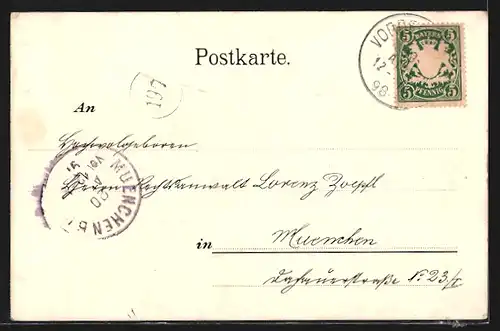 Postkarte.
VORR
12-
98
BAYERN
5 5
5 PFENNIG 5
197
An
Hochwolgeboren
Herrn Rechtsanwalt Lorenz Zoepfl
MUENCHEN
in Muenchen
Dachauerstraße No 23/I